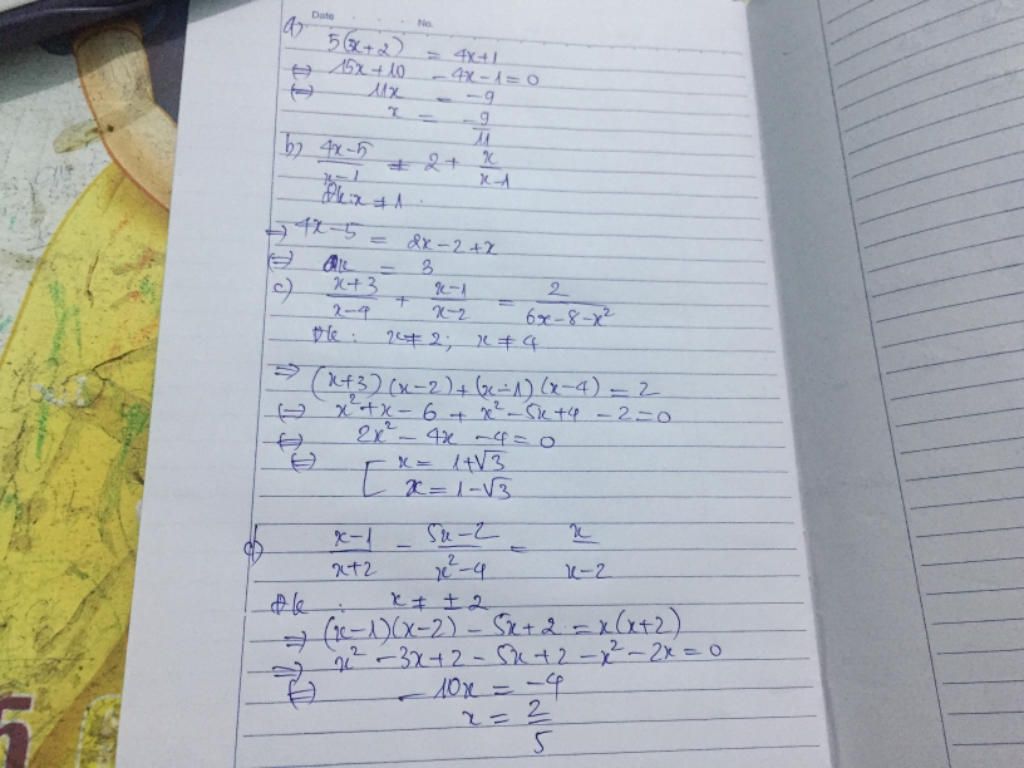 Date No.
a) 5(x+2) = 4x+1
⇔ 15x+10 - 4x-1=0
⇔ 11x = -9
x = -9/11
b) (4x-5)/(x-1) = 2 + x/(x-1)
Đk: x ≠ 1
→ 4x-5 = 2x-2+x
⇔ x = 3
c) (x+3)/(x-4) + (x-1)/(x-2) = 2/(6x-8-x²)
Đk: x≠2; x≠4
⇒ (x+3)(x-2)+(x-1)(x-4) = 2
⇔ x²+x-6+x²-5x+4-2=0
⇔ 2x²-4x-4=0
⇔ [ x = 1+√3
x = 1-√3
d) (x-1)/(x+2) - (5x-2)/(x²-4) = x/(x-2)
Đk: x ≠ ±2
⇒ (x-1)(x-2) - 5x+2 = x(x+2)
⇒ x²-3x+2-5x+2-x²-2x=0
⇔ -10x = -4
x = 2/5
5